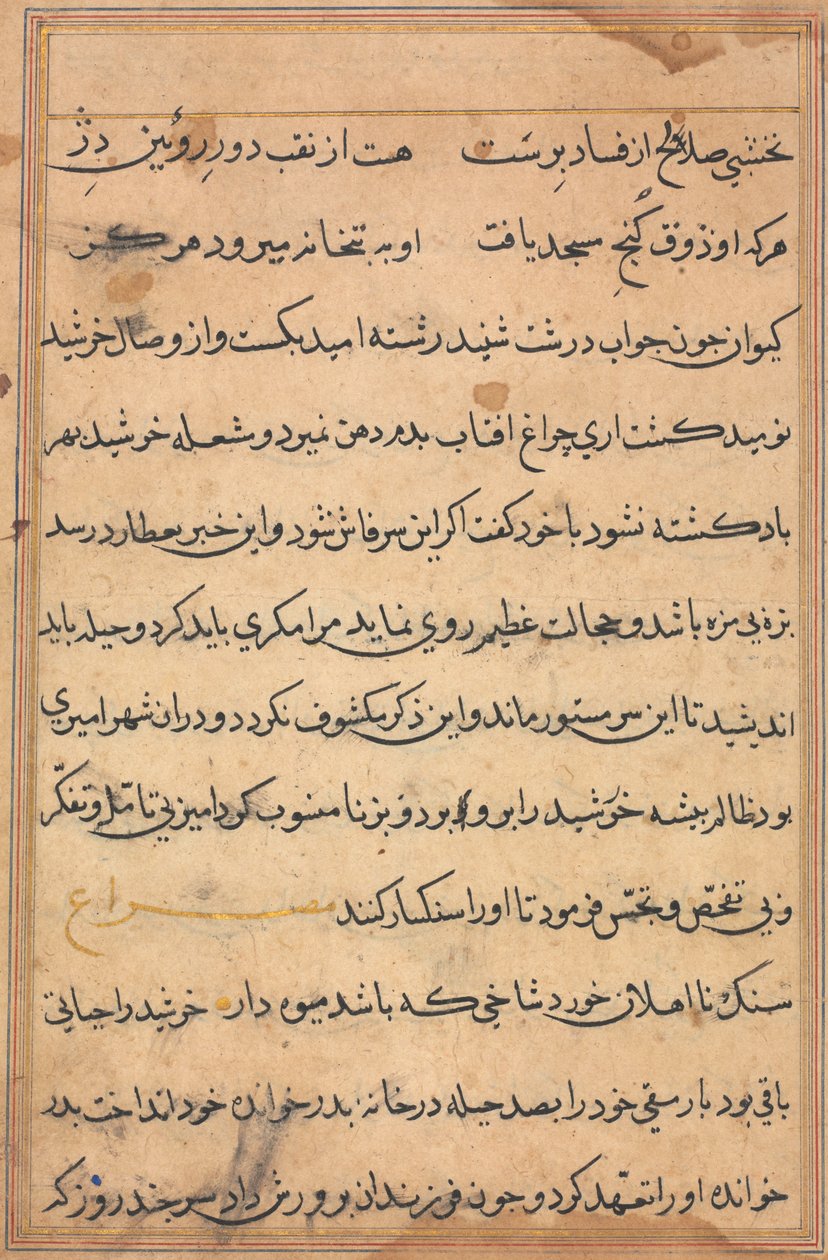 نخشبي صلاح از فساد برست هست از نقب دور رؤئين دژ
هركه او ذوق كنج مسجد يافت او به بتخانه ميرود هركز
كيوان جون جواب درشت شنيد رشته اميد بكست و از وصال خرشيد
نوميد كشت اري چراغ افتاب بدم دهن نميرد و مشعله خرشيد بهر
باد كشته نشود با خود كفت اكر اين سر فاش شود و اين خبر بعطارد رسد
بزه بي مزه باشد و خجالت عظيم روي نمايد مرا مكري بايد كرد و حيله بايد
انديشيد تا اين سر مستور ماند و اين ذكر مكشوف نكردد و دران شهر اميري
بود ظالم بيشه خرشيد را برو برد و بزنا منسوب كرد امير بي تامّل و تفكّر
و بي تفحّص و تجسّس فرمود تا او را سنكسار كنند مصراع
سنك نا اهلان خورد شاخي كه باشد ميوه دار خرشيد را حياتي
باقي بود بار مقي خود را بصد حيله در خانهٔ بدر خوانده خود انداخت بدر
خوانده او را تعهّد كرد و جون فرزندان برورش داد سر جند روز كه